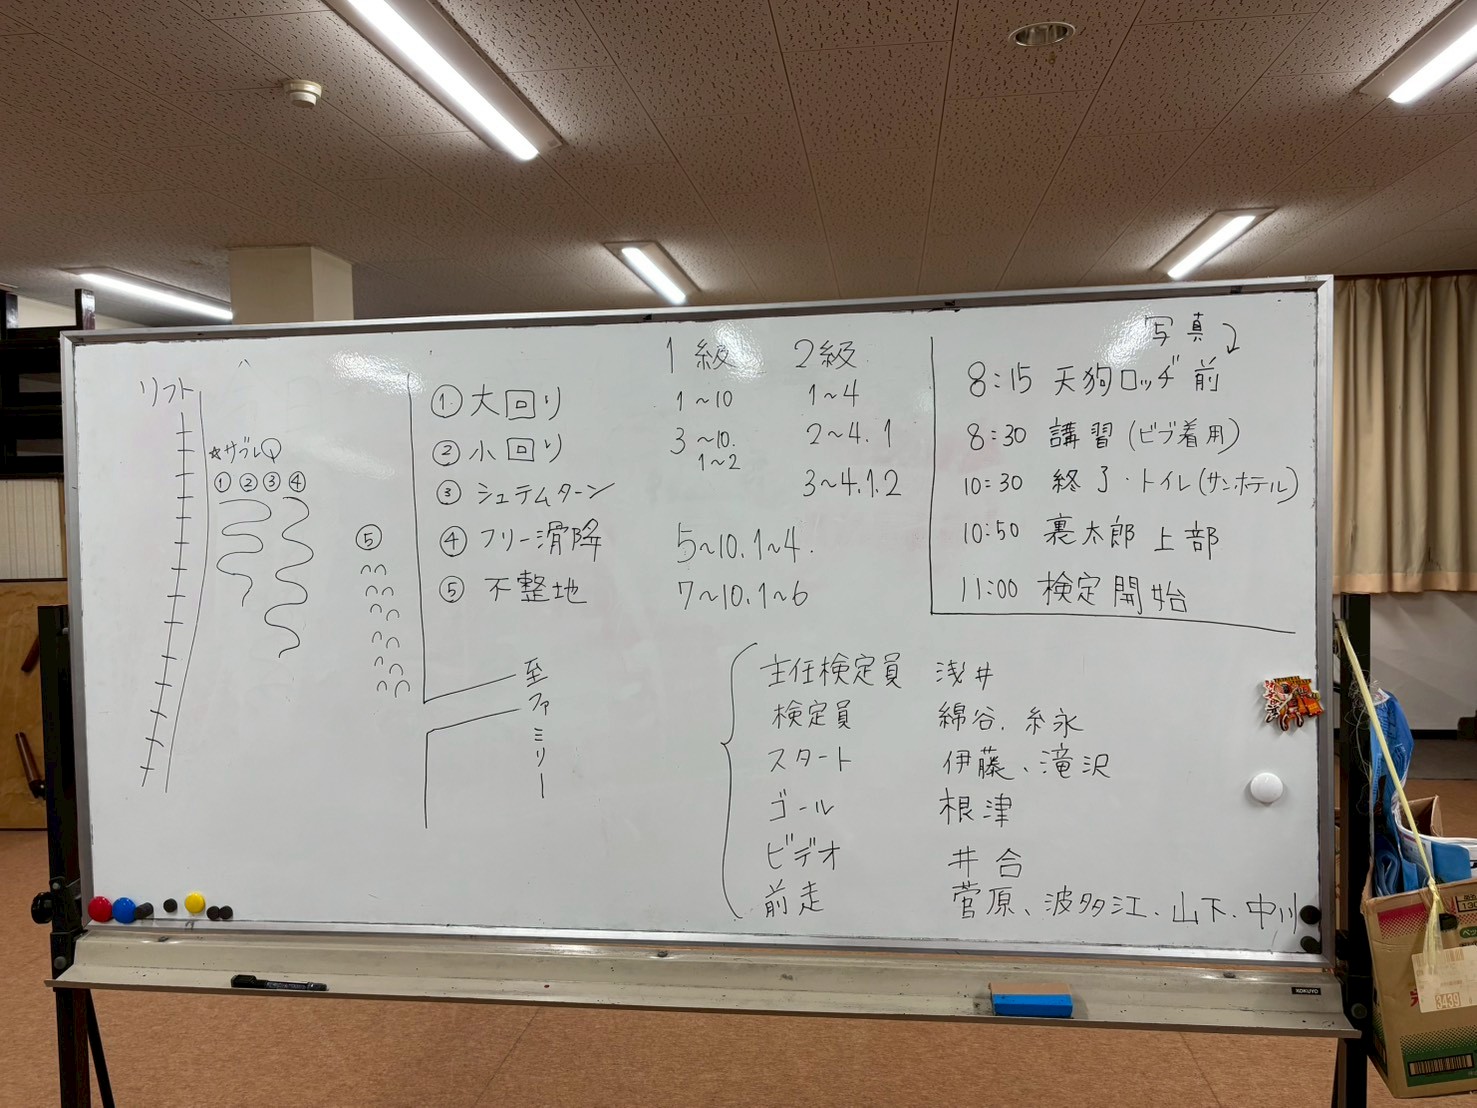 リフト
☆サブレQ
① ② ③ ④
⑤
1級 2級
① 大回り 1~10 1~4
② 小回り 3~10. 1~2 2~4.1
③ シュテムターン 3~4.1.2
④ フリー滑降 5~10.1~4.
⑤ 不整地 7~10.1~6
至ファミリー
写真
8:15 天狗ロッヂ前
8:30 講習(ビブ着用)
10:30 終了・トイレ(サンホテル)
10:50 裏太郎上部
11:00 検定開始
主任検定員 浅井
検定員 綿谷、糸永
スタート 伊藤、滝沢
ゴール 根津
ビデオ 井合
前走 菅原、波多江、山下、中川
KOKUYO
3439